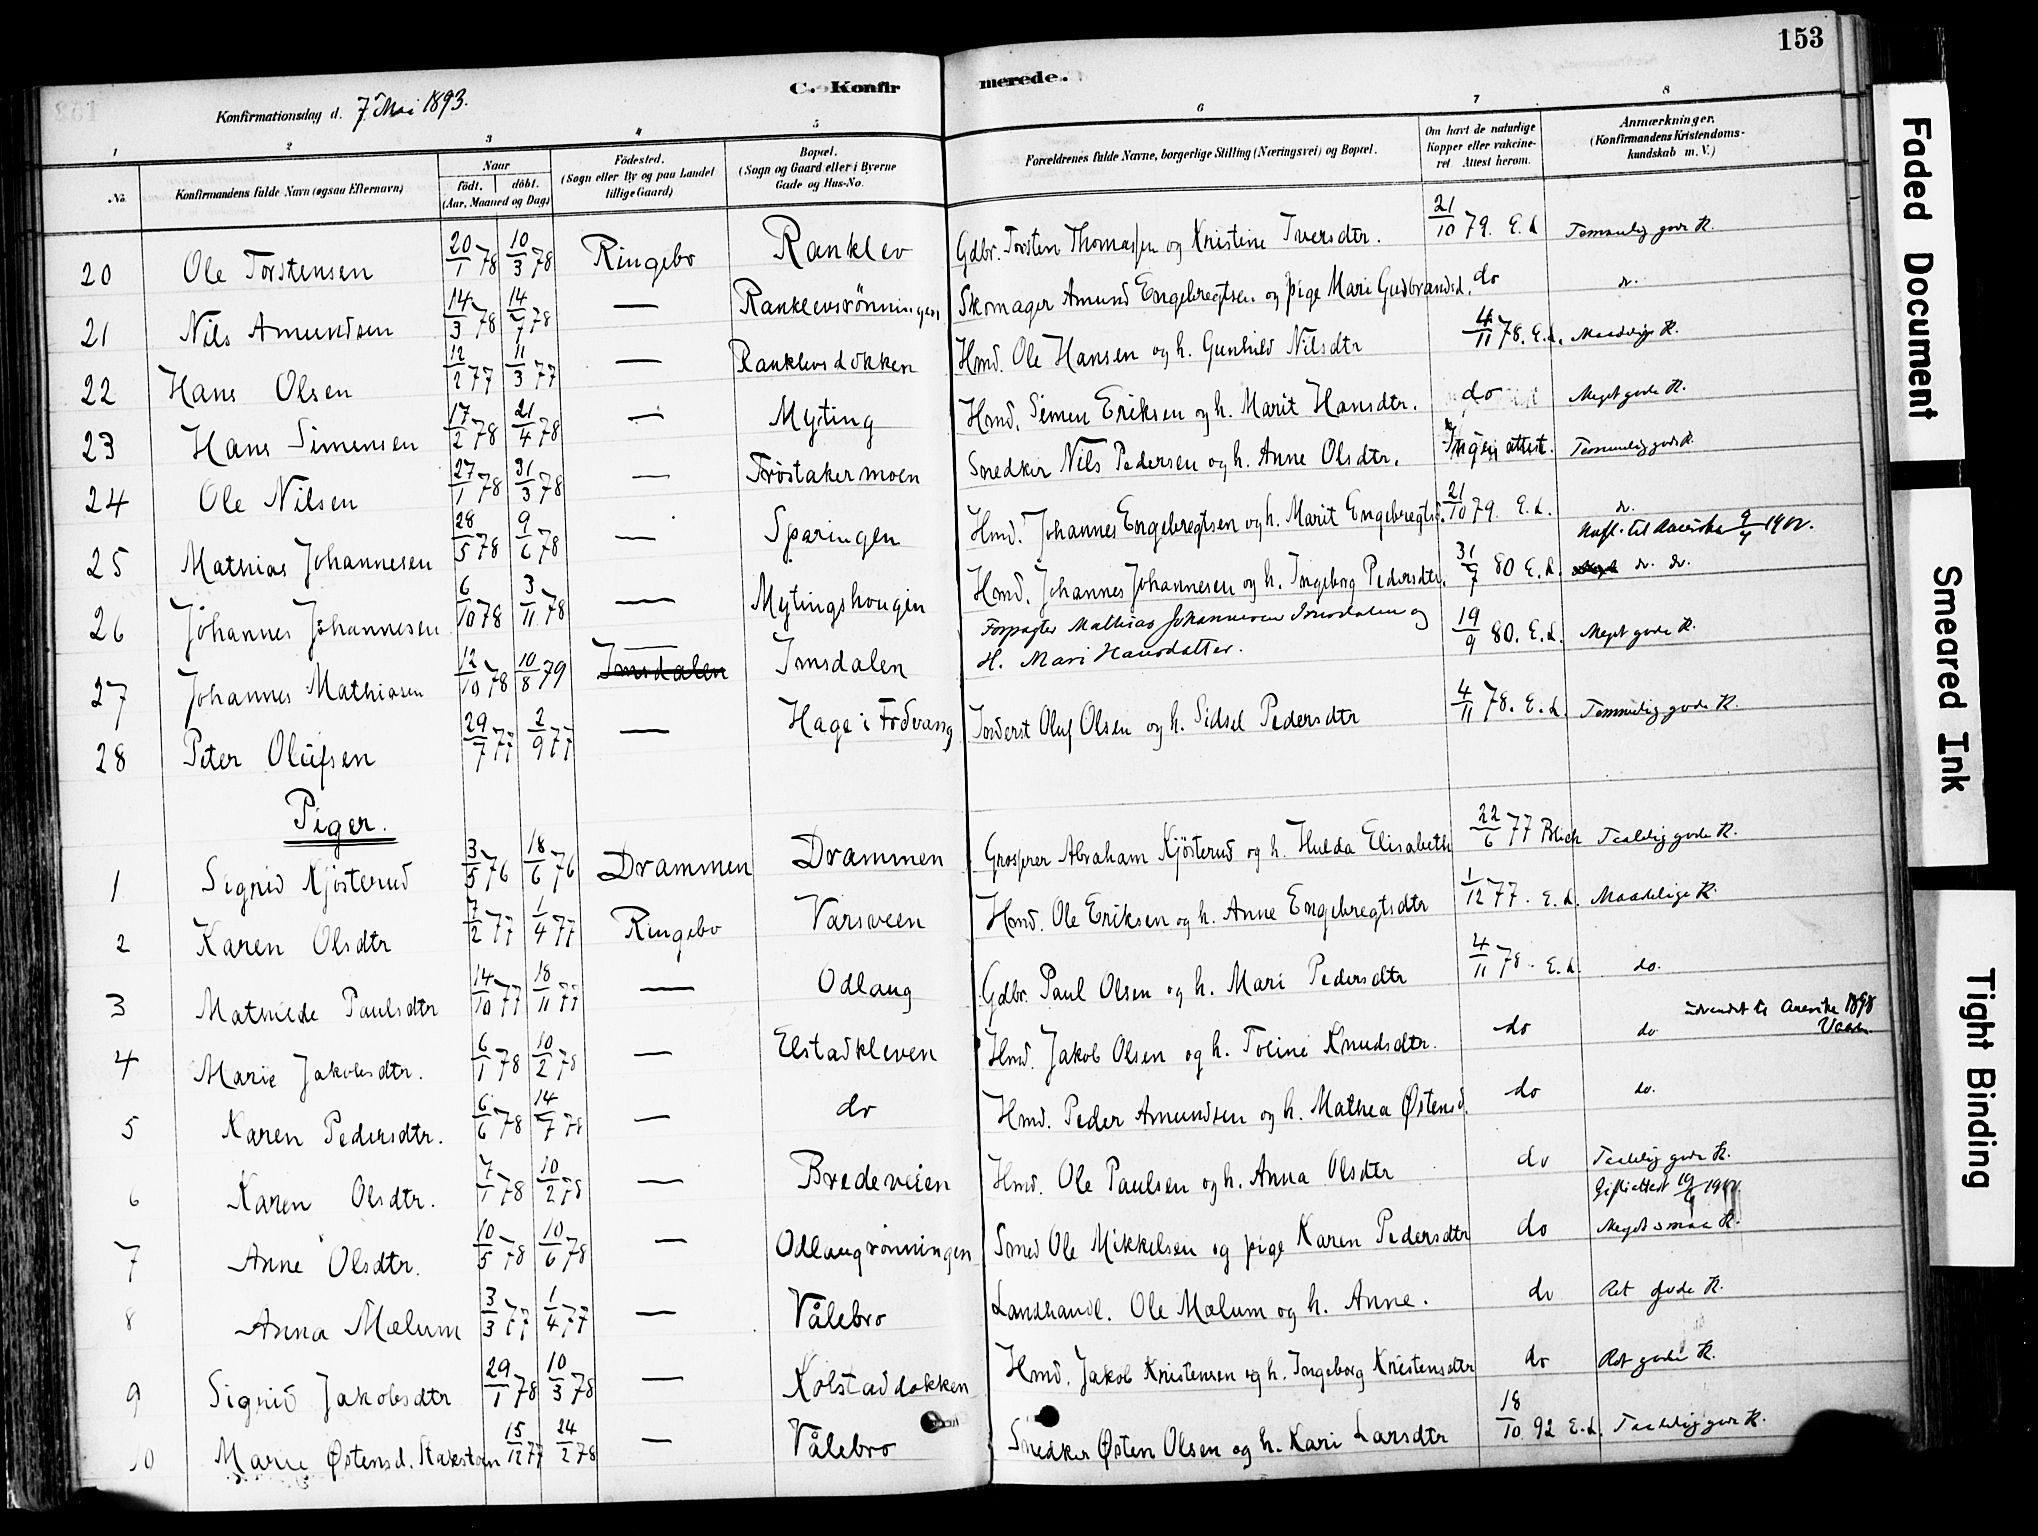 153
C. Konfirmerede.
Konfirmationsdag d. 7 Mai 1893.
1 2 3 4 5 6 7 8
No. Konfirmandens fulde Navn (ogsaa Efternavn) Naar født. døbt. (Aar, Maaned og Dag) Fødested. (Sogn eller By og paa Landet tillige Gaard) Bopæl. (Sogn og Gaard eller i Byerne Gade og Hus-No. Forældrenes fulde Navne, borgerlige Stilling (Næringsvei) og Bopæl. Om havt de naturlige Kopper eller vakcineret. Attest herom. Anmærkninger. (Konfirmandens Kristendomskundskab m. V.)
20 Ole Torstensen 20/1 78 10/3 78 Ringebo Ranklev Gdbr. Torsten Thomassen og Kristine Iversdtr. 21/10 79. E. L. Temmelig gode K.
21 Nils Amundsen 14/3 78 14/7 78 — Ranklevsrönningen Skomager Amund Engebregtsen og pige Mari Gudbrandsd. do do.
22 Hans Olsen 12/2 77 11/3 77 — Ranklevsdokken Hmd. Ole Hansen og h. Gunhild Nilsdtr 4/11 78. E. L. Maadelige K.
23 Hans Simensen 17/2 78 21/4 78 — Myting Hmd. Simen Eriksen og h. Marit Hansdtr. do Meget gode K.
24 Ole Nilsen 27/1 78 31/3 78 — Tröstakermoen Snedker Nils Pedersen og h. Anne Olsdtr. Ingen attest. Temmelig gode K.
25 Mathias Johannesen 28/5 78 9/6 78 — Sparingen Hmd. Johannes Engebregtsen og h. Marit Engebregtsd. 21/10 79. E. L. do.
til Amerika 1902.
26 Johannes Johannesen 6/10 78 3/11 78 — Mytingshougen Hmd. Johannes Johannesen og h. Ingeborg Pedersdtr. 31/7 80 E. L. do. do.
27 Johannes Mathiasen 12/10 78 10/8 79 — Imsdalen Imsdalen Forpagter Mathias Johannesen Imsdalen og
H. Mari Hansdatter. 19/9 80. E. L. Meget gode K.
28 Peter Olufsen 29/7 77 2/9 77 — Hage i Fodvang Inderst Oluf Olsen og h. Sidsel Pedersdtr 4/11 78. E. L. Temmelig gode K.
Piger.
1 Sigrid Kjösterud 3/5 76 18/6 76 Drammen Drammen Grosserer Abraham Kjösterud og h. Hulda Elisabeth 22/6 77 Blich Taalelig gode K.
2 Karen Olsdtr 7/2 77 1/4 77 Ringebo Varsveen Hmd. Ole Eriksen og h. Anne Engebregtsdtr 1/12 77. E. L. Maadelige K.
3 Mathilde Paulsdtr 14/10 77 18/11 77 — Odlaug Gdbr. Paul Olsen og h. Mari Pedersdtr 4/11 78. E. L. do.
4 Marie Jakobsdtr. 6/1 78 10/2 78 — Elstadkleven Hmd. Jakob Olsen og h. Toline Knudsdtr. do do udvandret til Amerika 1898
5 Karen Pedersdtr. 6/6 78 14/7 78 — do Hmd. Peder Amundsen og h. Mathea Østensd. do do.
6 Karen Olsdtr. 7/1 78 10/2 78 — Bredeveien Hmd. Ole Paulsen og h. Anna Olsdtr do Taalelig gode K.
7 Anne Olsdtr. 10/5 78 10/6 78 — Odlaugrönningen Smed Ole Mikkelsen og pige Karen Pedersdtr do Meget smaa K.
8 Anna Mælum 3/3 77 1/4 77 — Vålebro Landhandl. Ole Mælum og h. Anne. do Ret gode K.
9 Sigrid Jakobsdtr 29/1 78 10/3 78 — Kolstaddokken Hmd. Jakob Kristensen og h. Ingeborg Kristensdtr do Ret gode K.
10 Marie Østensd. Stakston 15/12 77 24/2 78 — Vålebro Snedker Østen Olsen og h. Kari Larsdtr 18/10 92 E. L. Taalelig gode K.
Faded Document
Smeared Ink
Tight Binding